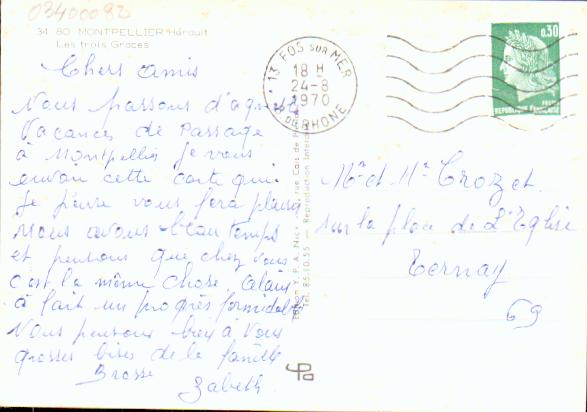 03400082
34 80 MONTPELLIER Hérault
Les trois Graces
Chers amis
Nous passons d'agréables
Vacances de Passage
à Montpellier je vous
envoie cette carte qui
je pense vous fera plaisir
Nous avons beau temps
et pensons que chez vous
c'est la même chose. Alain
à fait un progrès formidable
Nous pensons bien à Vous
grosses bises de la famille
Brosse
Zabeth.
13 FOS SUR MER
18 H
24-8
1970
B. DU RHONE
0,30
POSTES
REPUBLIQUE FRANÇAISE
Edition Y.P.A. Nice rue Cais de
Tél. 85.10.55 Reproduction Interdite
Mr et Me Crozet.
sur la place de L'Eglise
Ternay
69